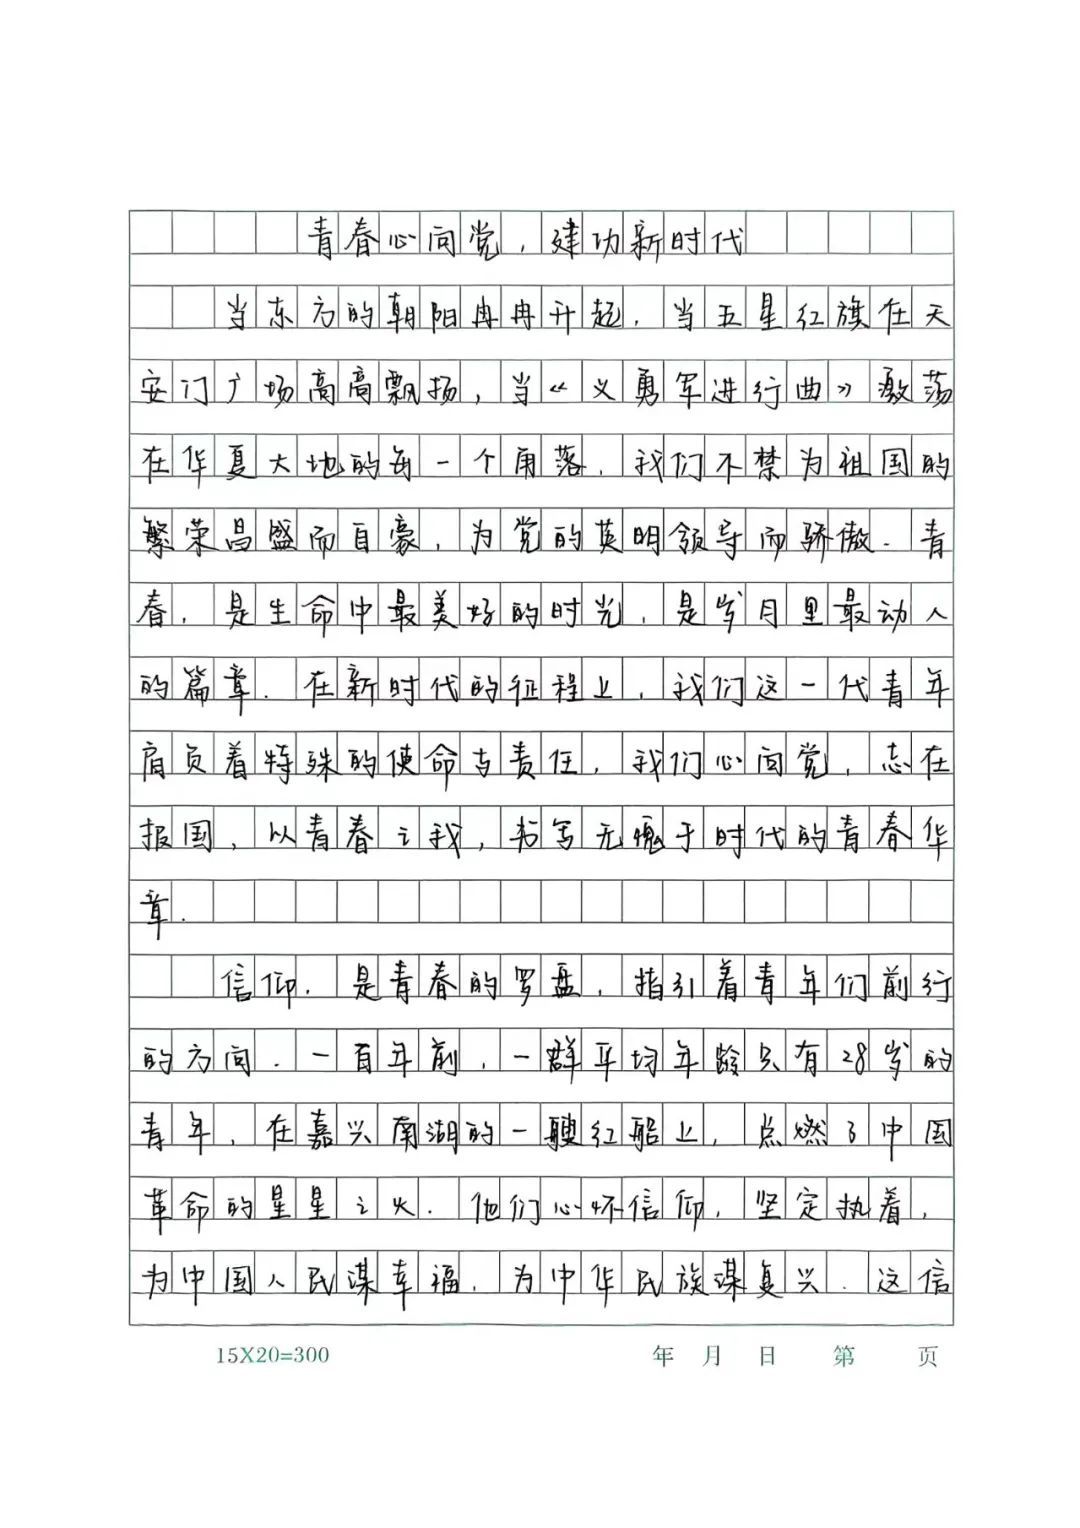 青春心向党，建功新时代
当东方的朝阳冉冉升起，当五星红旗在天
安门广场高高飘扬，当《义勇军进行曲》激荡
在华夏大地的每一个角落，我们不禁为祖国的
繁荣昌盛而自豪，为党的英明领导而骄傲.青
春，是生命中最美好的时光，是岁月里最动人
的篇章.在新时代的征程上，我们这一代青年
肩负着特殊的使命与责任，我们心向党，志在
报国，以青春之我，书写无愧于时代的青春华
章.
信仰，是青春的罗盘，指引着青年们前行
的方向.一百年前，一群平均年龄只有28岁的
青年，在嘉兴南湖的一艘红船上，点燃了中国
革命的星星之火.他们心怀信仰，坚定执着，
为中国人民谋幸福，为中华民族谋复兴.这信
15X20=300 年 月 日 第 页